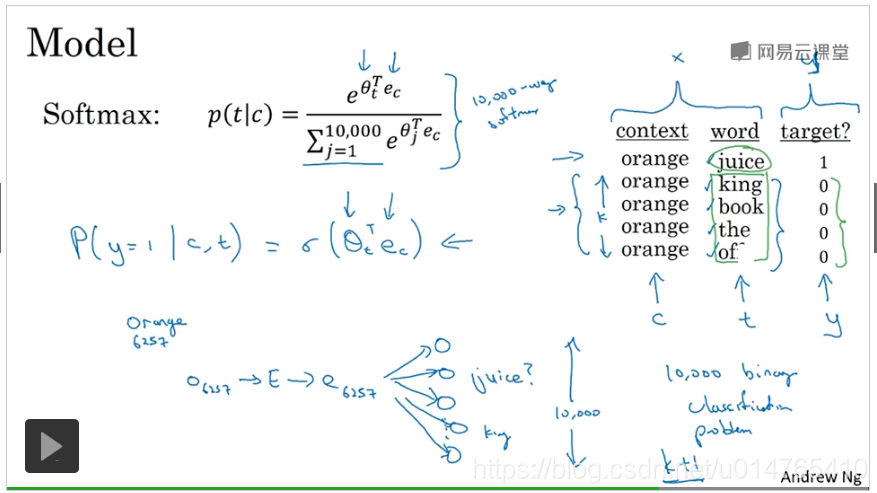 Model
网易云课堂
Softmax: p(t|c) = e^{θ_t^T e_c} / ∑_{j=1}^{10,000} e^{θ_j^T e_c}
10,000-way
softmax
x
y
context word target?
orange juice 1
orange king 0
orange book 0
orange the 0
orange of 0
k
c t y
P(y=1 | c,t) = σ(θ_t^T e_c)
Orange
6257
o_{6257} → E → e_{6257}
juice?
king
10,000
10,000 binary
classification
problem
k+1
https://blog.csdn.net/u014765410
Andrew Ng